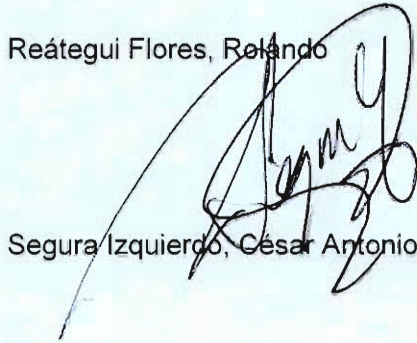 Reátegui Flores, Rolando
Segura Izquierdo, César Antonio